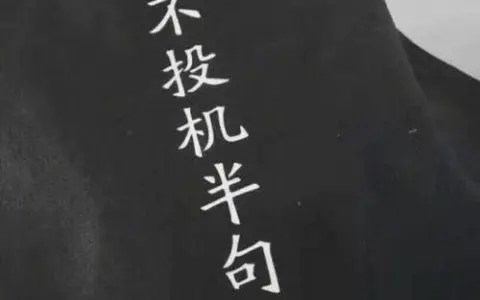 不投机半句